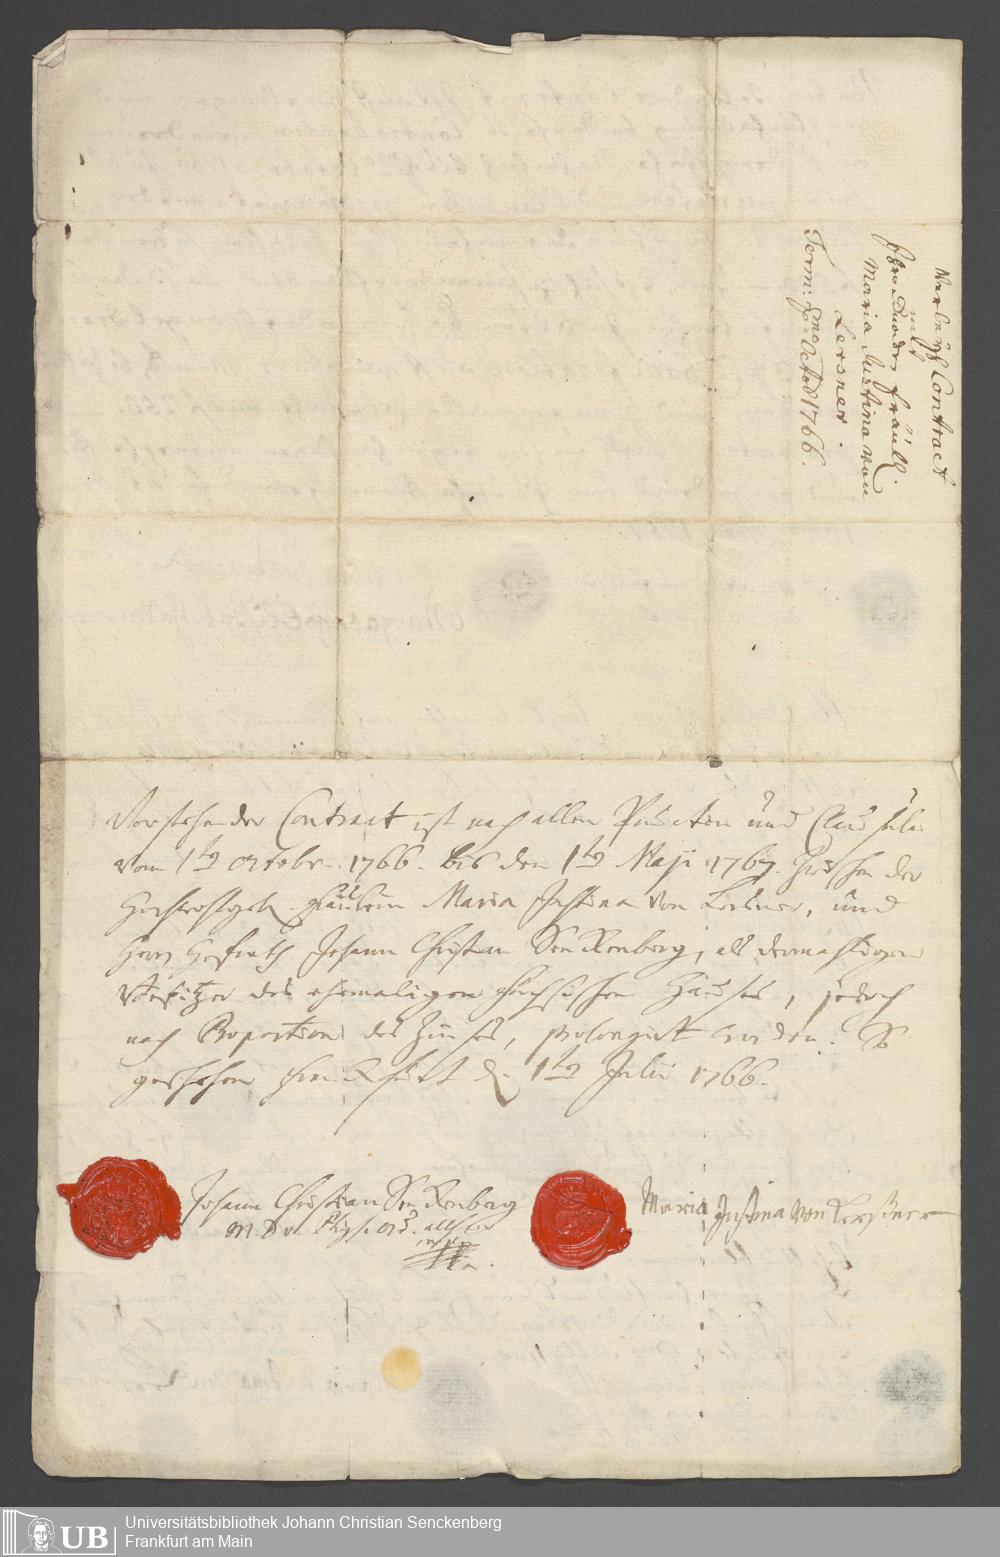 Verleyh Contract
mit
Ihro Gnaden Fräull.
Maria Justina von
Lersner.
Term: Octob 1766.
Vorstehender Contract ist nach allen Puncten und Clausuln
vom 1ten Octobr. 1766. bis den 1ten Maji 1767. zwischen der
Fräulein Maria Justina von Lersner, und
Herrn Hofrath Johann Christian Senckenberg, als dermahligen
Besitzer des ehemaligen Hauses, jedoch
nach Proportion des Zinses, prolongirt worden. So
geschehen Franckfurt d. 1ten Julii 1766.
Johann Christian Senckenberg
M. D. Phys. ord.
Maria Justina von Lerßner
Universitätsbibliothek Johann Christian Senckenberg
Frankfurt am Main
UB